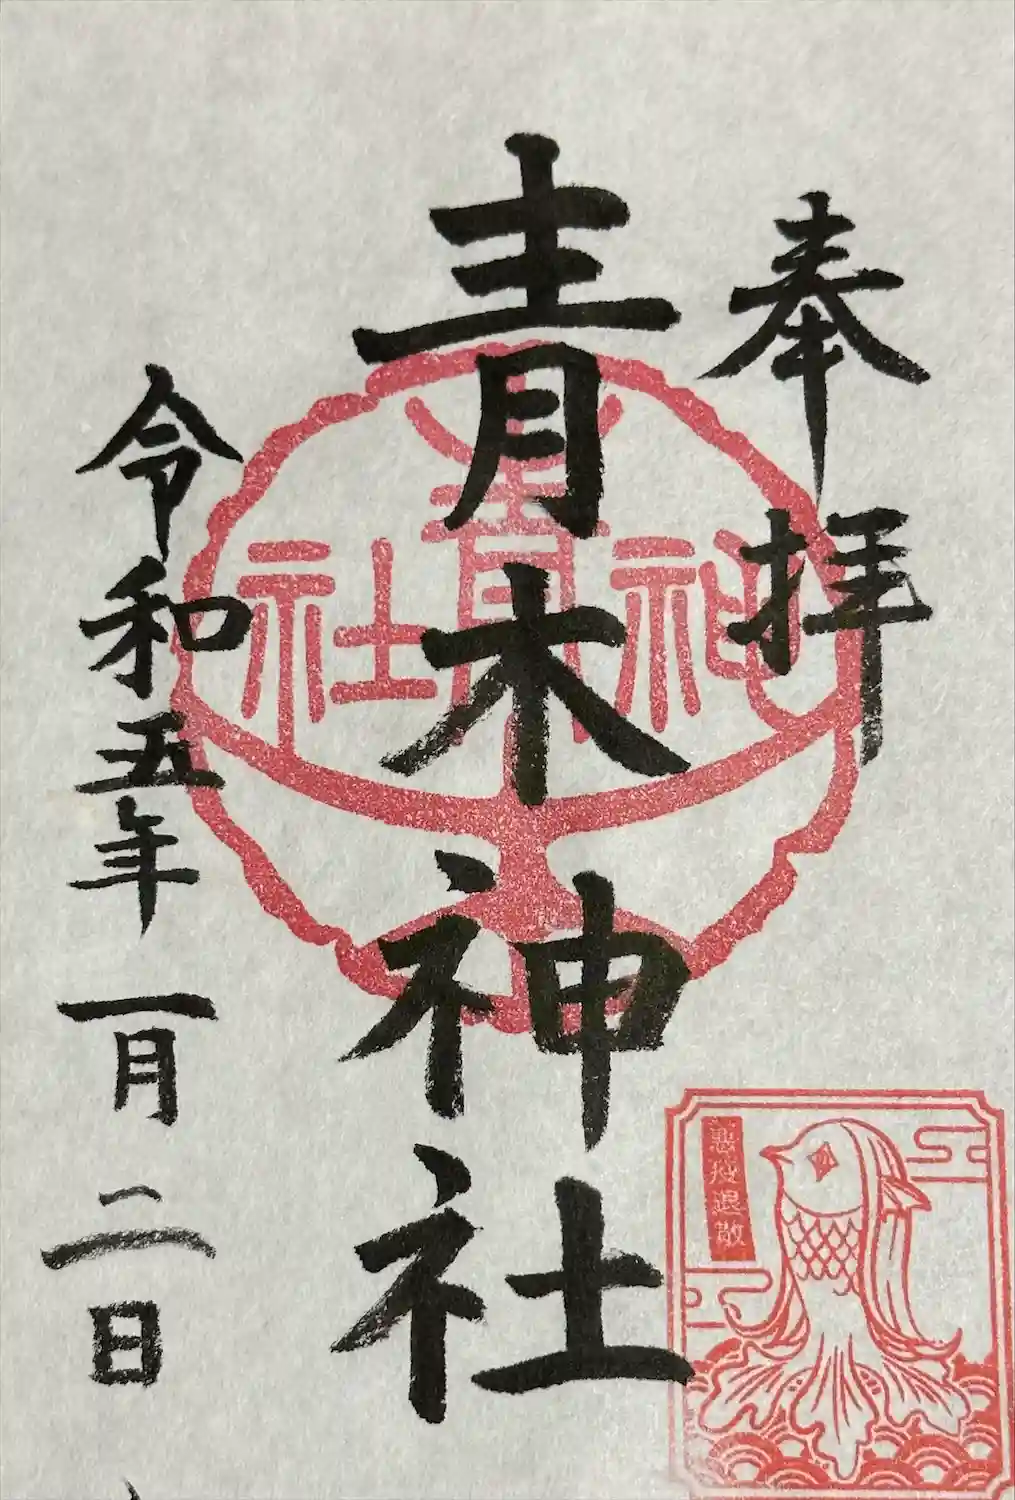 奉拝
青木神社
令和五年一月二日
悪疫退散